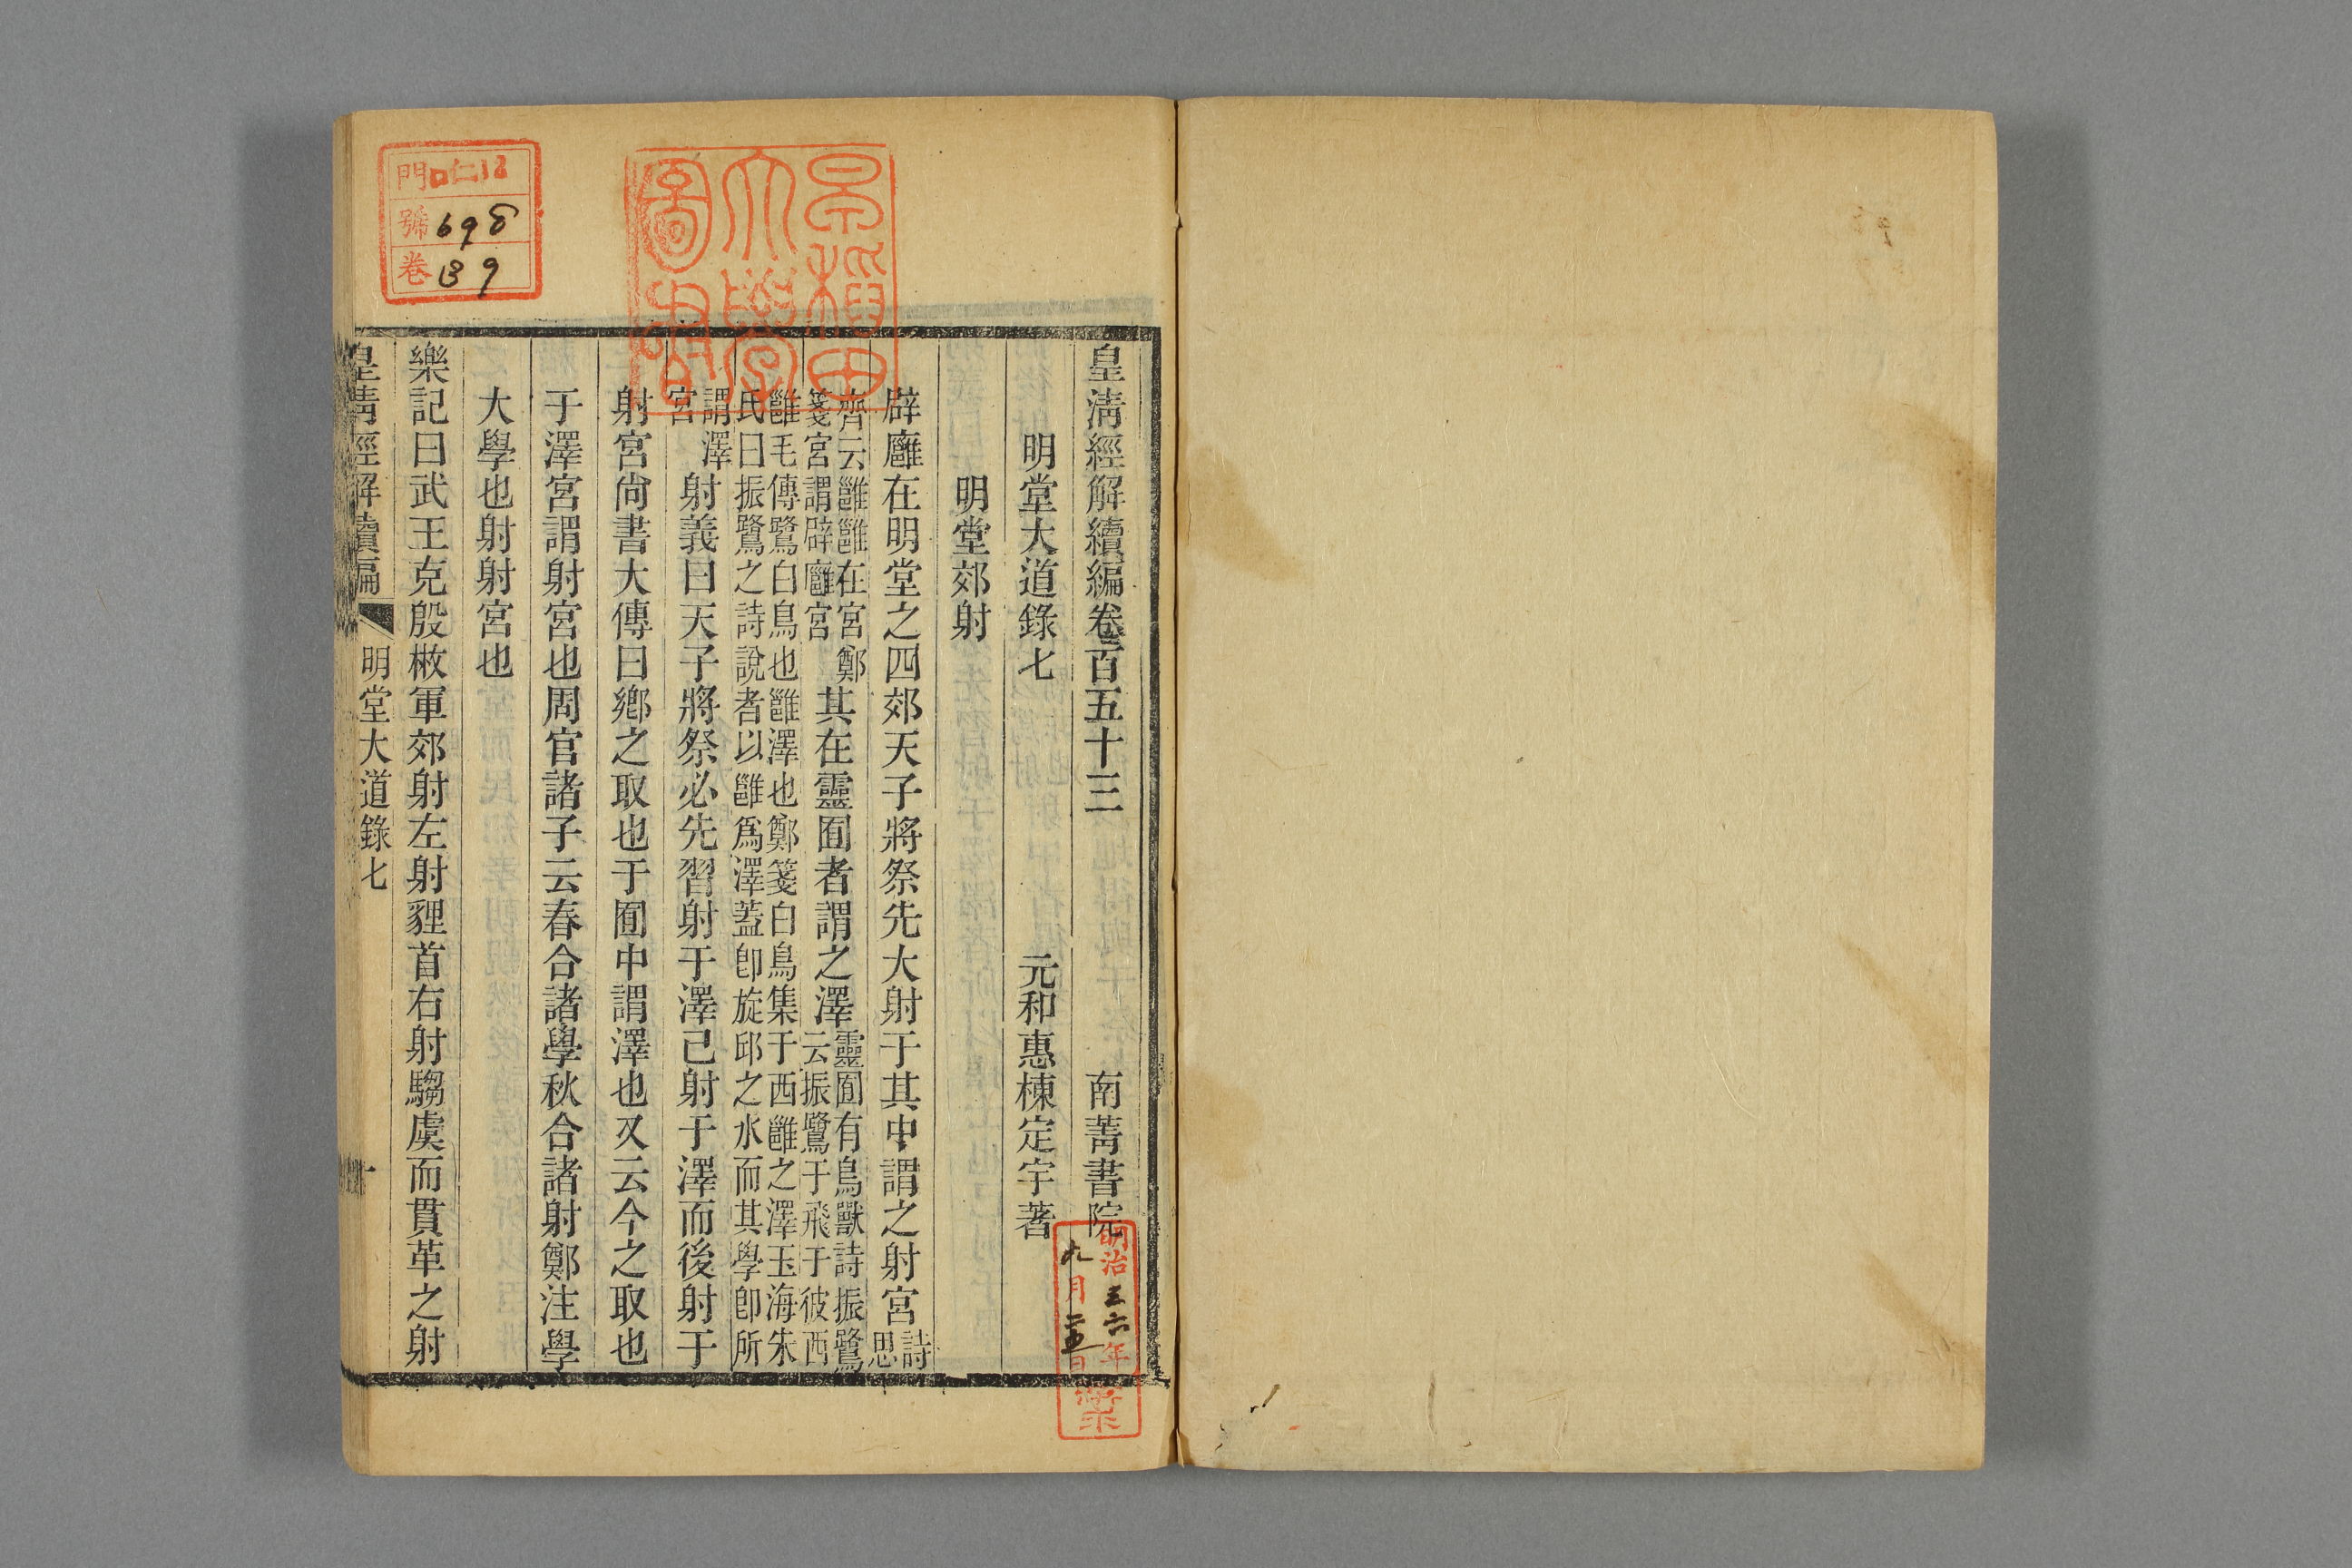 皇清經解續編卷百五十三 南菁書院
明堂大道錄七 元和惠棟定宇著
明堂郊射
辟廱在明堂之四郊天子將祭先大射于其中謂之射宮詩思
齊云雝雝在宮鄭箋宮謂辟廱宮其在靈囿者謂之澤靈囿有鳥獸詩振鷺云振鷺于飛于彼西
雝毛傳鷺白鳥也雝澤也鄭箋白鳥集于西雝之澤玉海朱氏曰振鷺之詩說者以雝爲澤蓋卽旋邱之水而其學卽所
謂澤宮射義曰天子將祭必先習射于澤已射于澤而後射于
射宮尙書大傳曰鄉之取也于囿中謂澤也又云今之取也
于澤宮謂射宮也周官諸子云春合諸學秋合諸射鄭注學
大學也射射宮也
樂記曰武王克殷散軍郊射左射貍首右射騶虞而貫革之射
皇淸經解續編 明堂大道錄七 一
早稻田大學圖書
門 口仁12
號 698
卷 139
明治三六年九月二五日